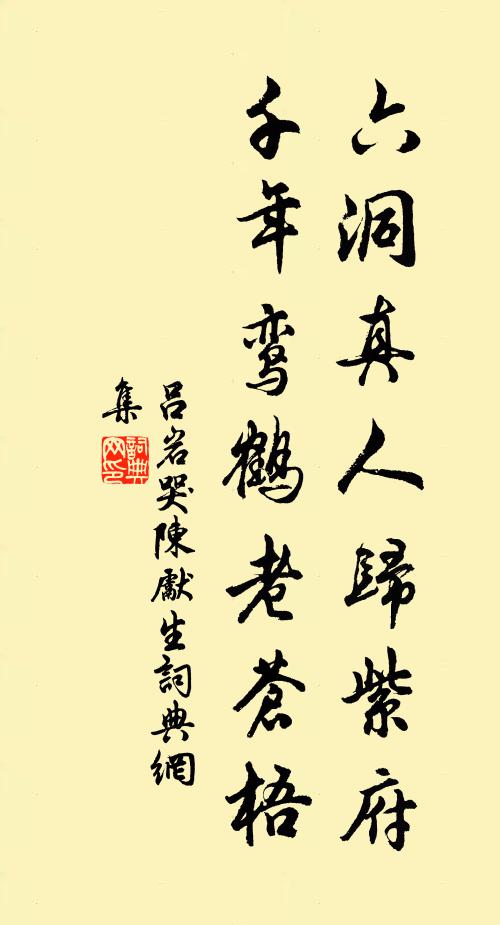 六洞真人歸紫府
千年鸾鶴老蒼梧
吕岩哭陳獻生詞典網
集
詞典
网印